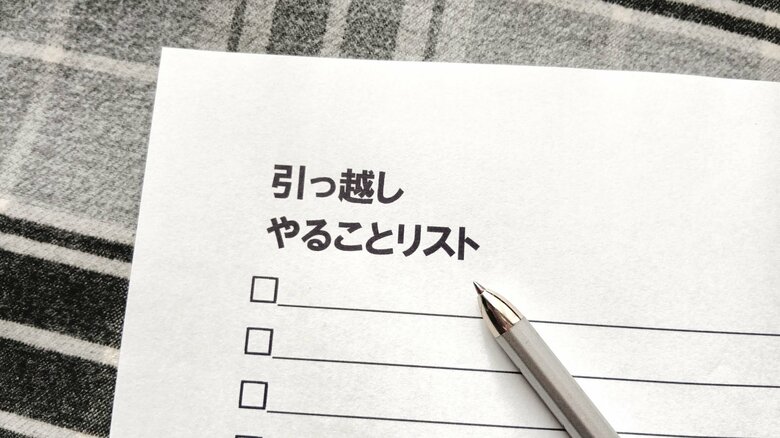 引っ越し
やることリスト